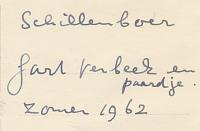 Schillenboer
Gart Verbeek en
paardje.
Zomer 1962